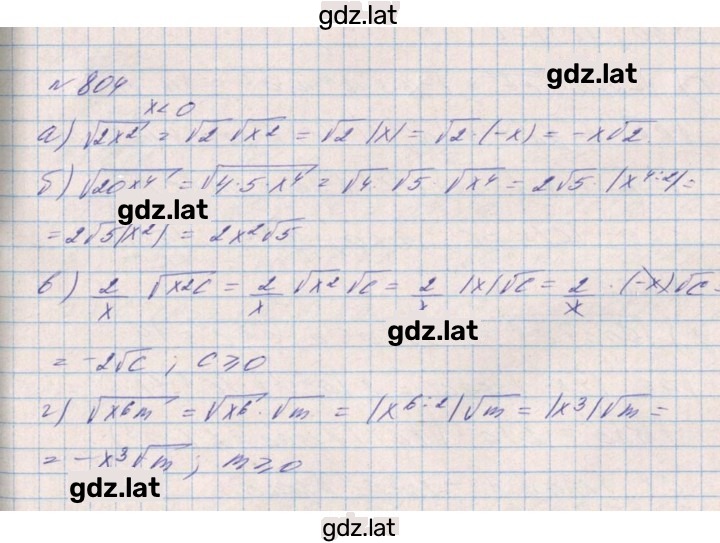 gdz.lat
№ 804
gdz.lat
x < 0
а) √2x² = √2 √x² = √2 |x| = √2 · (-x) = -x√2.
б) √20x⁴ = √4·5·x⁴ = √4 · √5 · √x⁴ = 2√5 · |x⁴:²| =
gdz.lat
= 2√5|x²| = 2x²√5
в) 2/x √x²c = 2/x √x² √c = 2/x |x|√c = 2/x · (-x)√c =
gdz.lat
= -2√c ; c ⩾ 0
г) √x⁶m = √x⁶ · √m = |x⁶:²|√m = |x³|√m =
= -x³√m ; m ⩾ 0
gdz.lat
gdz.lat